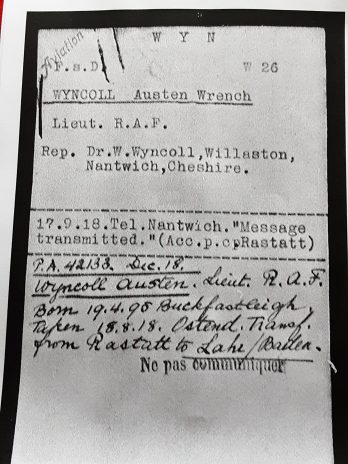 W Y N
Aviation
F.s.D. W 26
WYNCOLL Austen Wrench
Lieut. R.A.F.
Rep. Dr.W.Wyncoll,Willaston,
Nantwich,Cheshire.
17.9.18.Tel.Nantwich."Message
transmitted."(Acc.p.c.Rastatt)
P.A. 42133. Dec. 18.
Wyncoll Austen. Lieut. R.A.F.
Born 19.4.95 Buckfastleigh,
Taken 15.8.18. Ostend. Transf.
from Rastatt to Lahr/Baden.
Ne pas communiquer